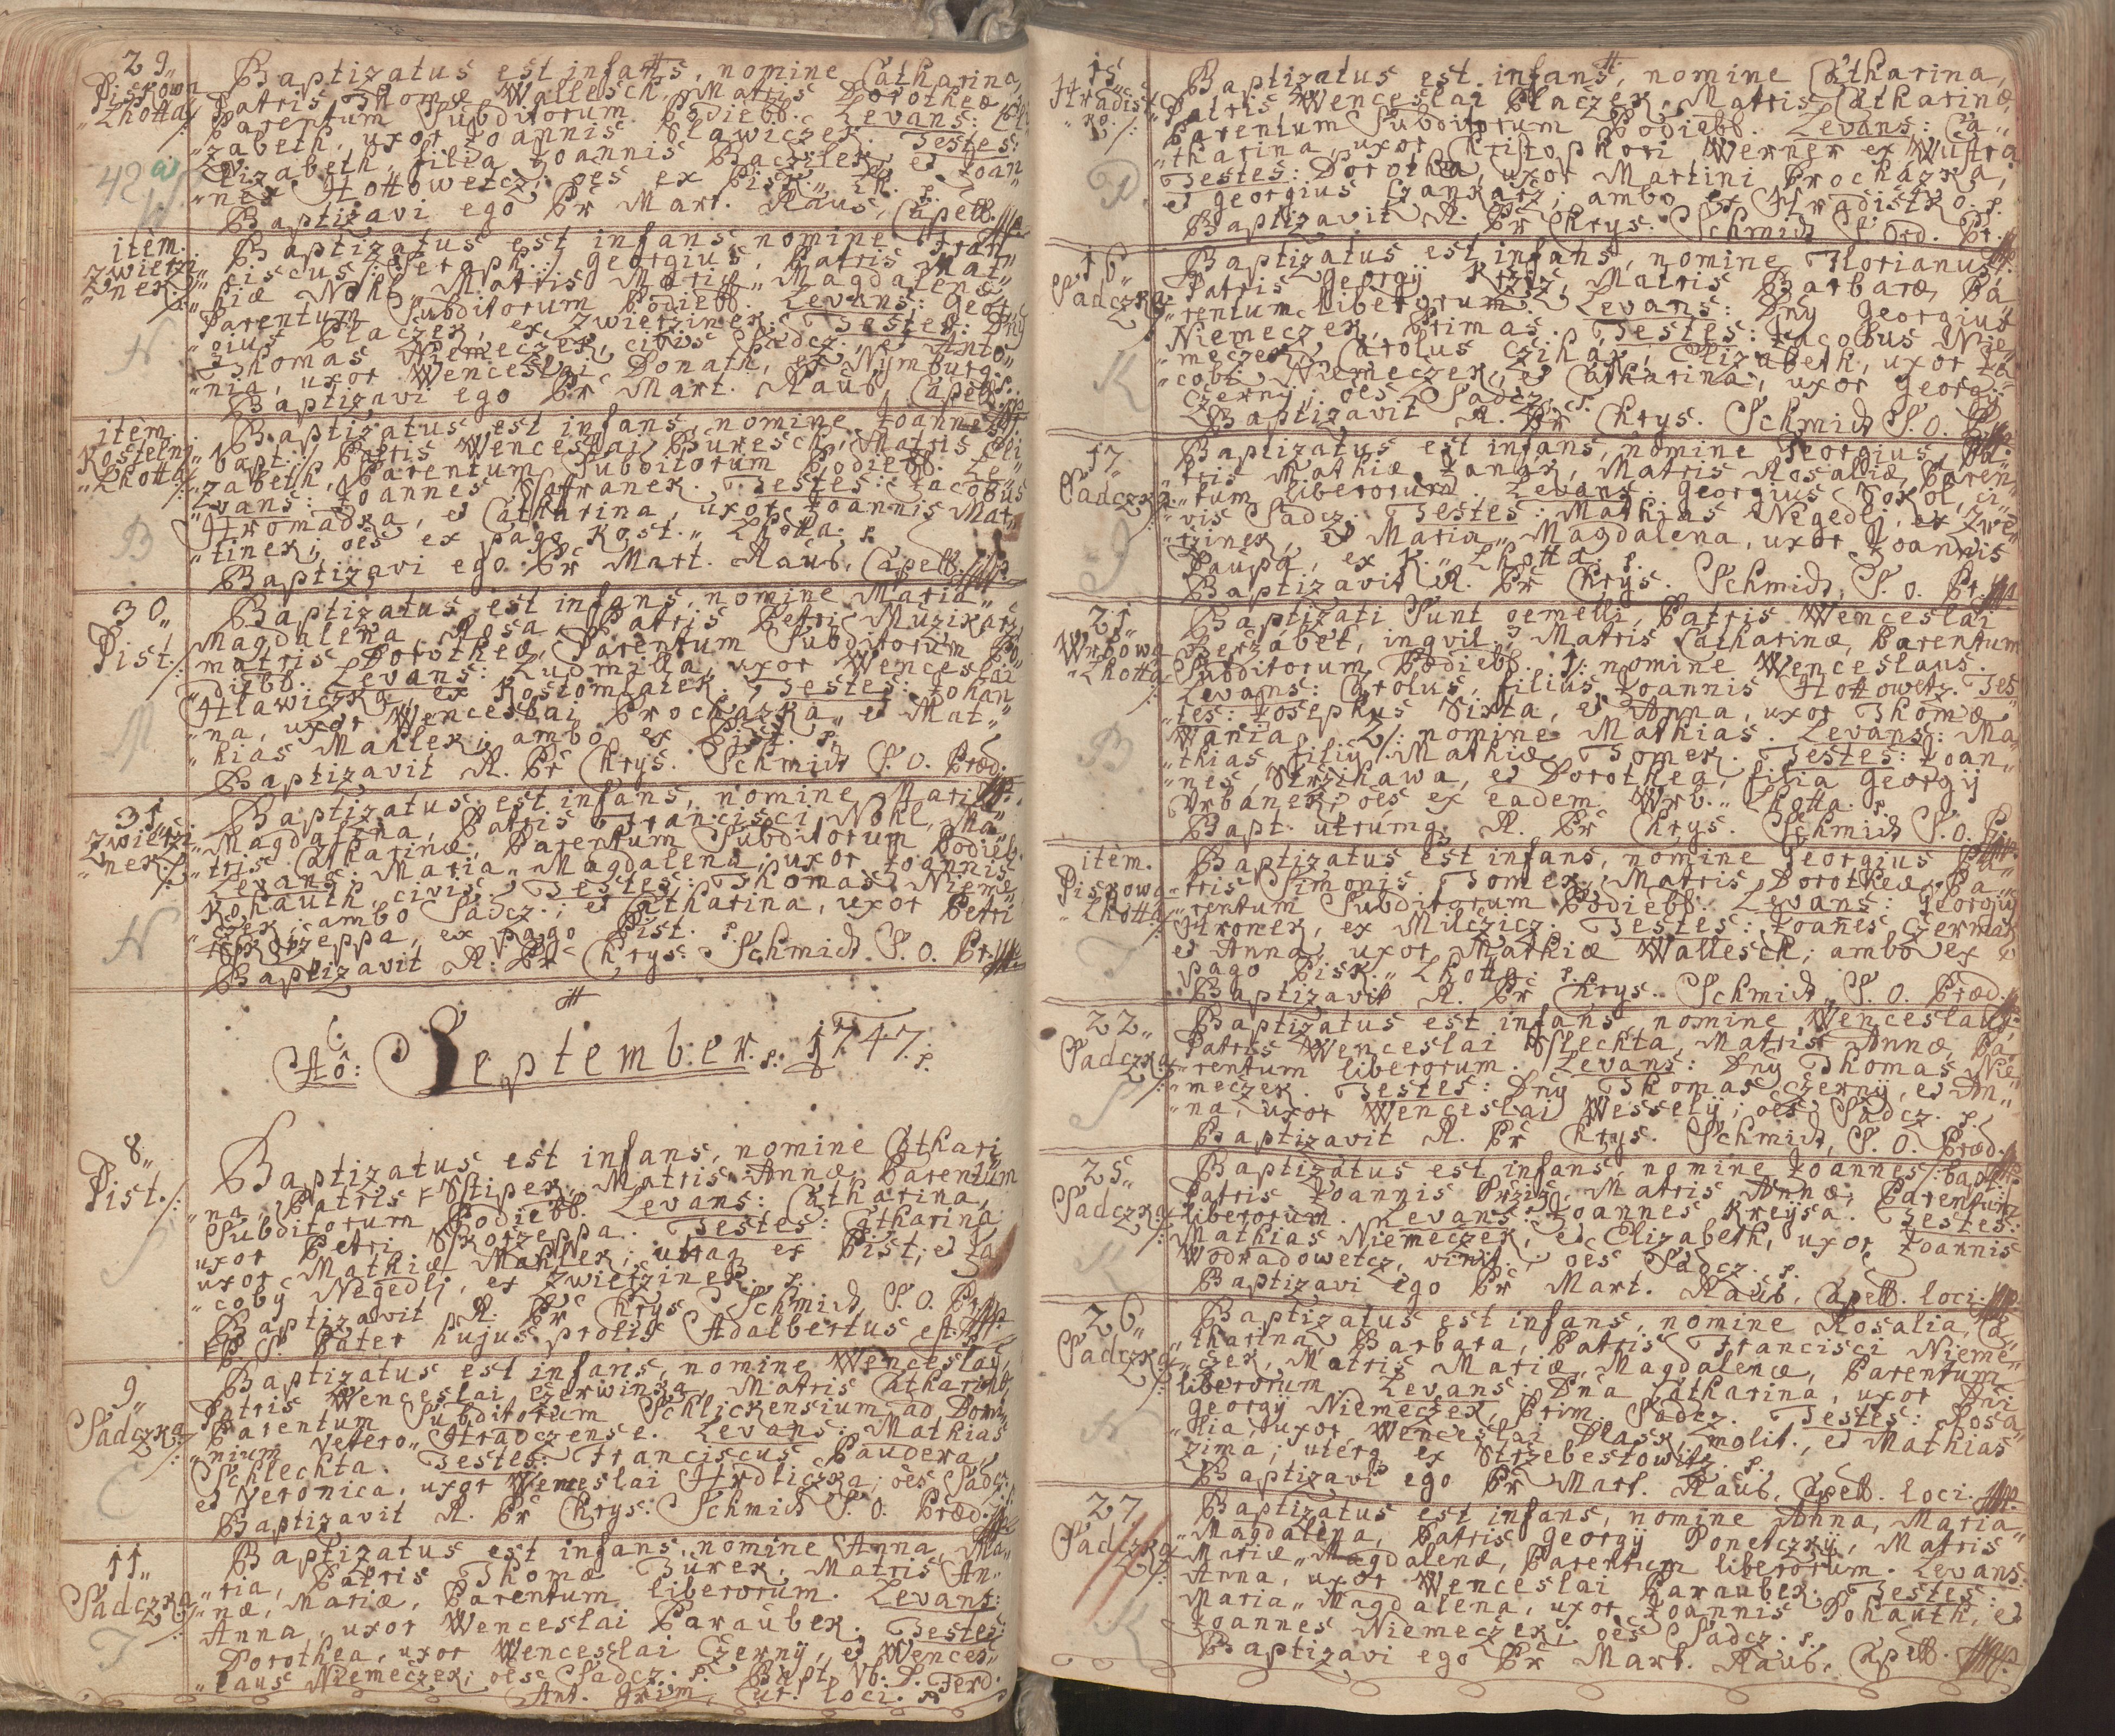 29,,
Piskowa
,,Lhotta/:
Baptizatus est infans, nomine Catharina,
Patris Thomæ Wallesch, Matris Dorotheæ,
Parentum Subditorum Podiebr. Levans: Eli
,,zabeth, uxor Joannis Slawiczek. Testes:
Elizabeth, filia Joannis Baczilek, et Joan
,,nes Hottowetz; oes ex Pisk.,, Lh.
Baptizavi ego Pr Mart. Raus, Capell.
item.
Zwierzi
,,nek/:
Baptizatus est infans, nomine Fran
,,ciscus /: Seraph.:/ Georgius, Patris Mat,,
,,hiæ Nohl, Matris Mariæ,, Magdalenæ,
Parentum Subditorum Podiebr. Levans: Geor
,,gius Placzek, ex Zwierzinek. Testes: Dny
Thomas Niemeczek, civis Sadcz., et Anto,,
,,nia, uxor Wenceslai Donath, ex Nymburg.
Baptizavi ego Pr Mart. Raus, Capell.
N
item.
Kostelni
,,Lhotta/:
Baptizatus est infans, nomine Joannes /:
bapt.:/ Patris Wenceslai Buresch, Matris Eli
,,zabeth, Parentum Subditorum Podiebr. Le,,
,,vans: Joannes Saffranek. Testes: Jacobus
Hromadka, et Catharina, uxor Joannis Mar,,
,,tinek; oes ex pago Kost.,, Lhotta.
Baptizavi ego Pr Mart. Raus, Capell.
B
30,,
Pist/:
Baptizatus est infans, nomine Maria,,
Magdalena, Rosa, Patris Petri Muzikarz,
matris Dorotheæ, Parentum Subditorum Po,,
,,diebr. Levans: Ludmilla, uxor Wenceslai
Hlawiczka ex Kostomlatek. Testes: Johan
,,na, uxor Wenceslai Prochazka, et Mat,,
,,hias Mahler; ambo ex Pist.
Baptizavit R. Pr Chrys. Schmidt S. O. Præd.
M
31,,
Zwierzi
,,nek/:
Baptizatus est infans, nomine Maria
Magdalena, Patris Francisci Nohl, Ma,,
,,tris Catharinæ, Parentum Subditorum Podieb.
Levans: Maria,, Magdalena, uxor Joannis
Kohauth, civis. Testes: Thomas Nieme
,,czek; ambo Sadcz.; et Catharina, uxor Petri
Skorzeppa, ex pago Pist.
Baptizavit R. Pr Chrys. Schmidt. S. O. Pr.
N
Aô: September. 1747.
8,,
Pist./:
Baptizatus est infans, nomine Cathari
,,na, Patris Stipek, Matris Annæ, Parentum
Subditorum Podiebr. Levans: Catharina,
uxor Petri Skorzeppa. Testes: Catharina
uxor Mathiæ Mahler; utraq ex Pist; et Ja
,,coby Negedlj, ex Zwierzinek.
Baptizavit R. Pr Chrys. Schmidt, S. O. Pr.
Pater hujus prolis Adalbertus est.
S
9,,
Sadczka/:
Baptizatus est infans, nomine Wenceslaus,
Patris Wenceslai Czerwinka, Matris Catharinæ,
Parentum Subditorum Schlickensium, ad Domi,,
,,nium Vetero,, Hradczense. Levans: Mathias
Schlechta. Testes: Franciscus Paudera,
et Veronica, uxor Wenceslai Hrdliczka; oes Sadcz.
Baptizavit R. Pr Chrys. Schmidt S. O. Præd.
C
11,,
Sadczka/:
Baptizatus est infans, nomine Anna, Ma,,
,,ria, Patris Thomæ Turek, Matris An,,
,,næ, Mariæ, Parentum liberorum. Levans:
Anna, uxor Wenceslai Parauber. Testes:
Dorothea, uxor Wenceslai Czerny, et Wences
,,laus Niemeczek; oes Sadcz. Bapt. Vb. D. Ferd.
Ant. Grim, Cur. loci.
T
15,,
Hradist
,,ko./:
Baptizatus est infans, nomine Catharina,
Patris Wenceslai Placzek, Matris Catharinæ,
Parentum Subditorum Podiebr. Levans: Ca,,
,,tharina, uxor Christophori Werner ex Wustra
Testes: Dorothea, uxor Martini Prochazka,
et Georgius Czankarz; ambo ex Hradistko.
Baptizavit R. Pr Chrys. Schmidt S. Ord. Pr.
P
16,,
Sadczka/:
Baptizatus est infans, nomine Florianus,
Patris Georgy Krziz, Matris Barbaræ, Pa
,,rentum liberorum. Levans: Dny Georgius
Niemeczek, Primas. Testes: Jacobus Nie
,,meczek, Carolus Czihak, Elizabeth, uxor Ja
,,cobi Niemeczek, et Catharina, uxor Georgy
Czerny; oes Sadcz.
Baptizavit R. Pr Chrys. Schmidt S. O. Pr.
K
17.
Sadczka/:
Baptizatus est infans, nomine Georgius, Pa
,,tris Mathiæ Janak, Matris Rosaliæ, Paren
,,tum liberorum. Levans: Georgius Sokol, ci,,
,,vis Sadcz. Testes: Mathias Negedlj, ex Zwie
,,rzinek, et Maria,, Magdalena, uxor Joannis
Paupa, ex K.,, Lhotta.
Baptizavit R. Pr Chrys. Schmidt, S. O. Pr.
J
21,,
Wrbowa
,,Lhotta/:
Baptizati Sunt gemelli, Patris Wenceslai
Berzabet, inqvil., Matris Catharinæ, Parentum
Subditorum Podiebr. 1/: nomine Wenceslaus.
Levans: Carolus, filius Joannis Hottowetz. Tes
,,tes: Josephus Sixta, et Anna, uxor Thomæ
Wania. 2/: nomine Mathias. Levans: Ma,,
,,thias, filiy Mathiæ Tomek. Testes: Joan,,
,,nes Strzihawa, et Dorothea, filia Georgy
Urbanek; oes ex eadem Wrb.,, Lhotta.
Bapt. utrumq. R. Pr Chrys. Schmidt S. O. Pr.
B
item.
Piskowa
,,Lhotta/:
Baptizatus est infans, nomine Georgius, Pa
,,tris Simonis Tomek, Matris Dorotheæ, Pa,,
,,rentum Subditorum Podiebr. Levans: Georgiy
Hronek, ex Milczicz. Testes: Joañes Czermak
et Anna, uxor Mathiæ Wallesch; ambo ex
pago Pisk.,, Lhotta.
Baptizavit R. Pr Chrys. Schmidt, S. O. Præd.
T
22,,
Sadczka/:
Baptizatus est infans, nomine Wenceslaus,
Patris Wenceslai Slechta, Matris Annæ, Pa
,,rentum liberorum. Levans: Dny Thomas Nie
,,meczek. Testes: Dny Thomas Czerny, et An,,
,,na, uxor Wenceslai Wessely; oes Sadcz.
Baptizavit R. Pr Chrys. Schmidt, S. O. Præd.
S
25,,
Sadczka/:
Baptizatus est infans, nomine Joannes /: bapt:/
Patris Joannis Krziz, Matris Annæ, Parentum
liberorum. Levans: Joannes Kreysa. Testes:
Mathias Niemeczek, et Elizabeth, uxor Joannis
Wodradowetcz, vint.; oes Sadcz.
Baptizavi ego Pr Mart. Raus, Capell. loci.
K
26,,
Sadczka/:
Baptizatus est infans, nomine Rosalia, Ca,,
,,tharina, Barbara, Patris Francisci Nieme,,
,,czek, Matris Mariæ,, Magdalenæ, Parentum
liberorum. Levans: Dna Catharina, uxor Dni
Georgy Niemeczek, Prim. Sadcz. Testes: Rosa
,,lia, uxor Wenceslai Plask, molit., et Mathias
Zima; uterq ex Strzebestowitz.
Baptizavi ego Pr Mart. Raus, Capell. loci.
N
27,
Sadczka/:
Baptizatus est infans, nomine Anna, Maria,,
,,Magdalena, Patris Georgy Konetczny, Matris
Mariæ,, Magdalenæ, Parentum liberorum. Levans:
Anna, uxor Wenceslai Parauber. Testes:
Maria,, Magdalena, uxor Joannis Kohauth, et
Joannes Niemeczek; oes Sadcz.
Baptizavi ego Pr Mart. Raus, Capell.
K